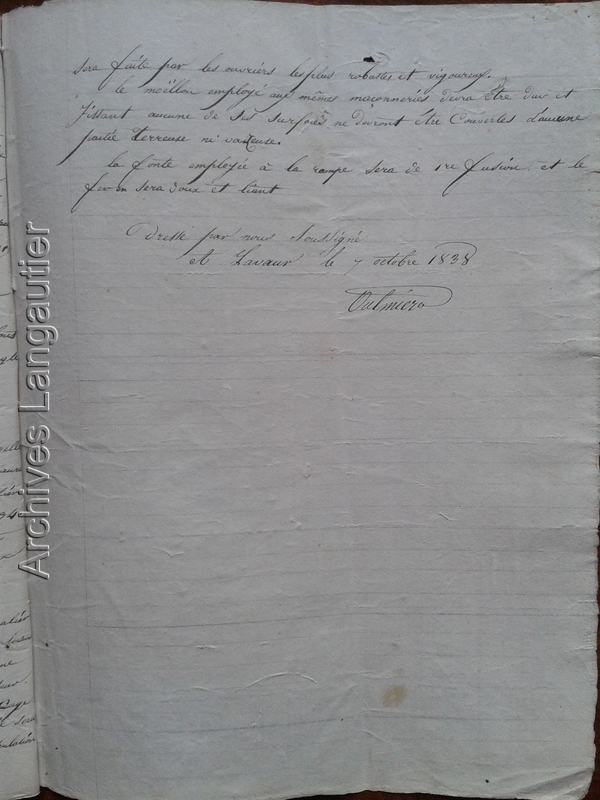 sera faite par les ouvriers les plus robustes et vigoureux.
le moëllon employé aux mêmes maçonneries devra être dur et
aucune de ses surfaces ne devront être couvertes d'aucune
partie terreuse ni vaseuse.
la fonte employée à la rampe sera de 1re fusion et le
fer en sera doux et liant
Dressé par nous Soussigné
A Lavaur le 7 octobre 1838
Archives Langautier